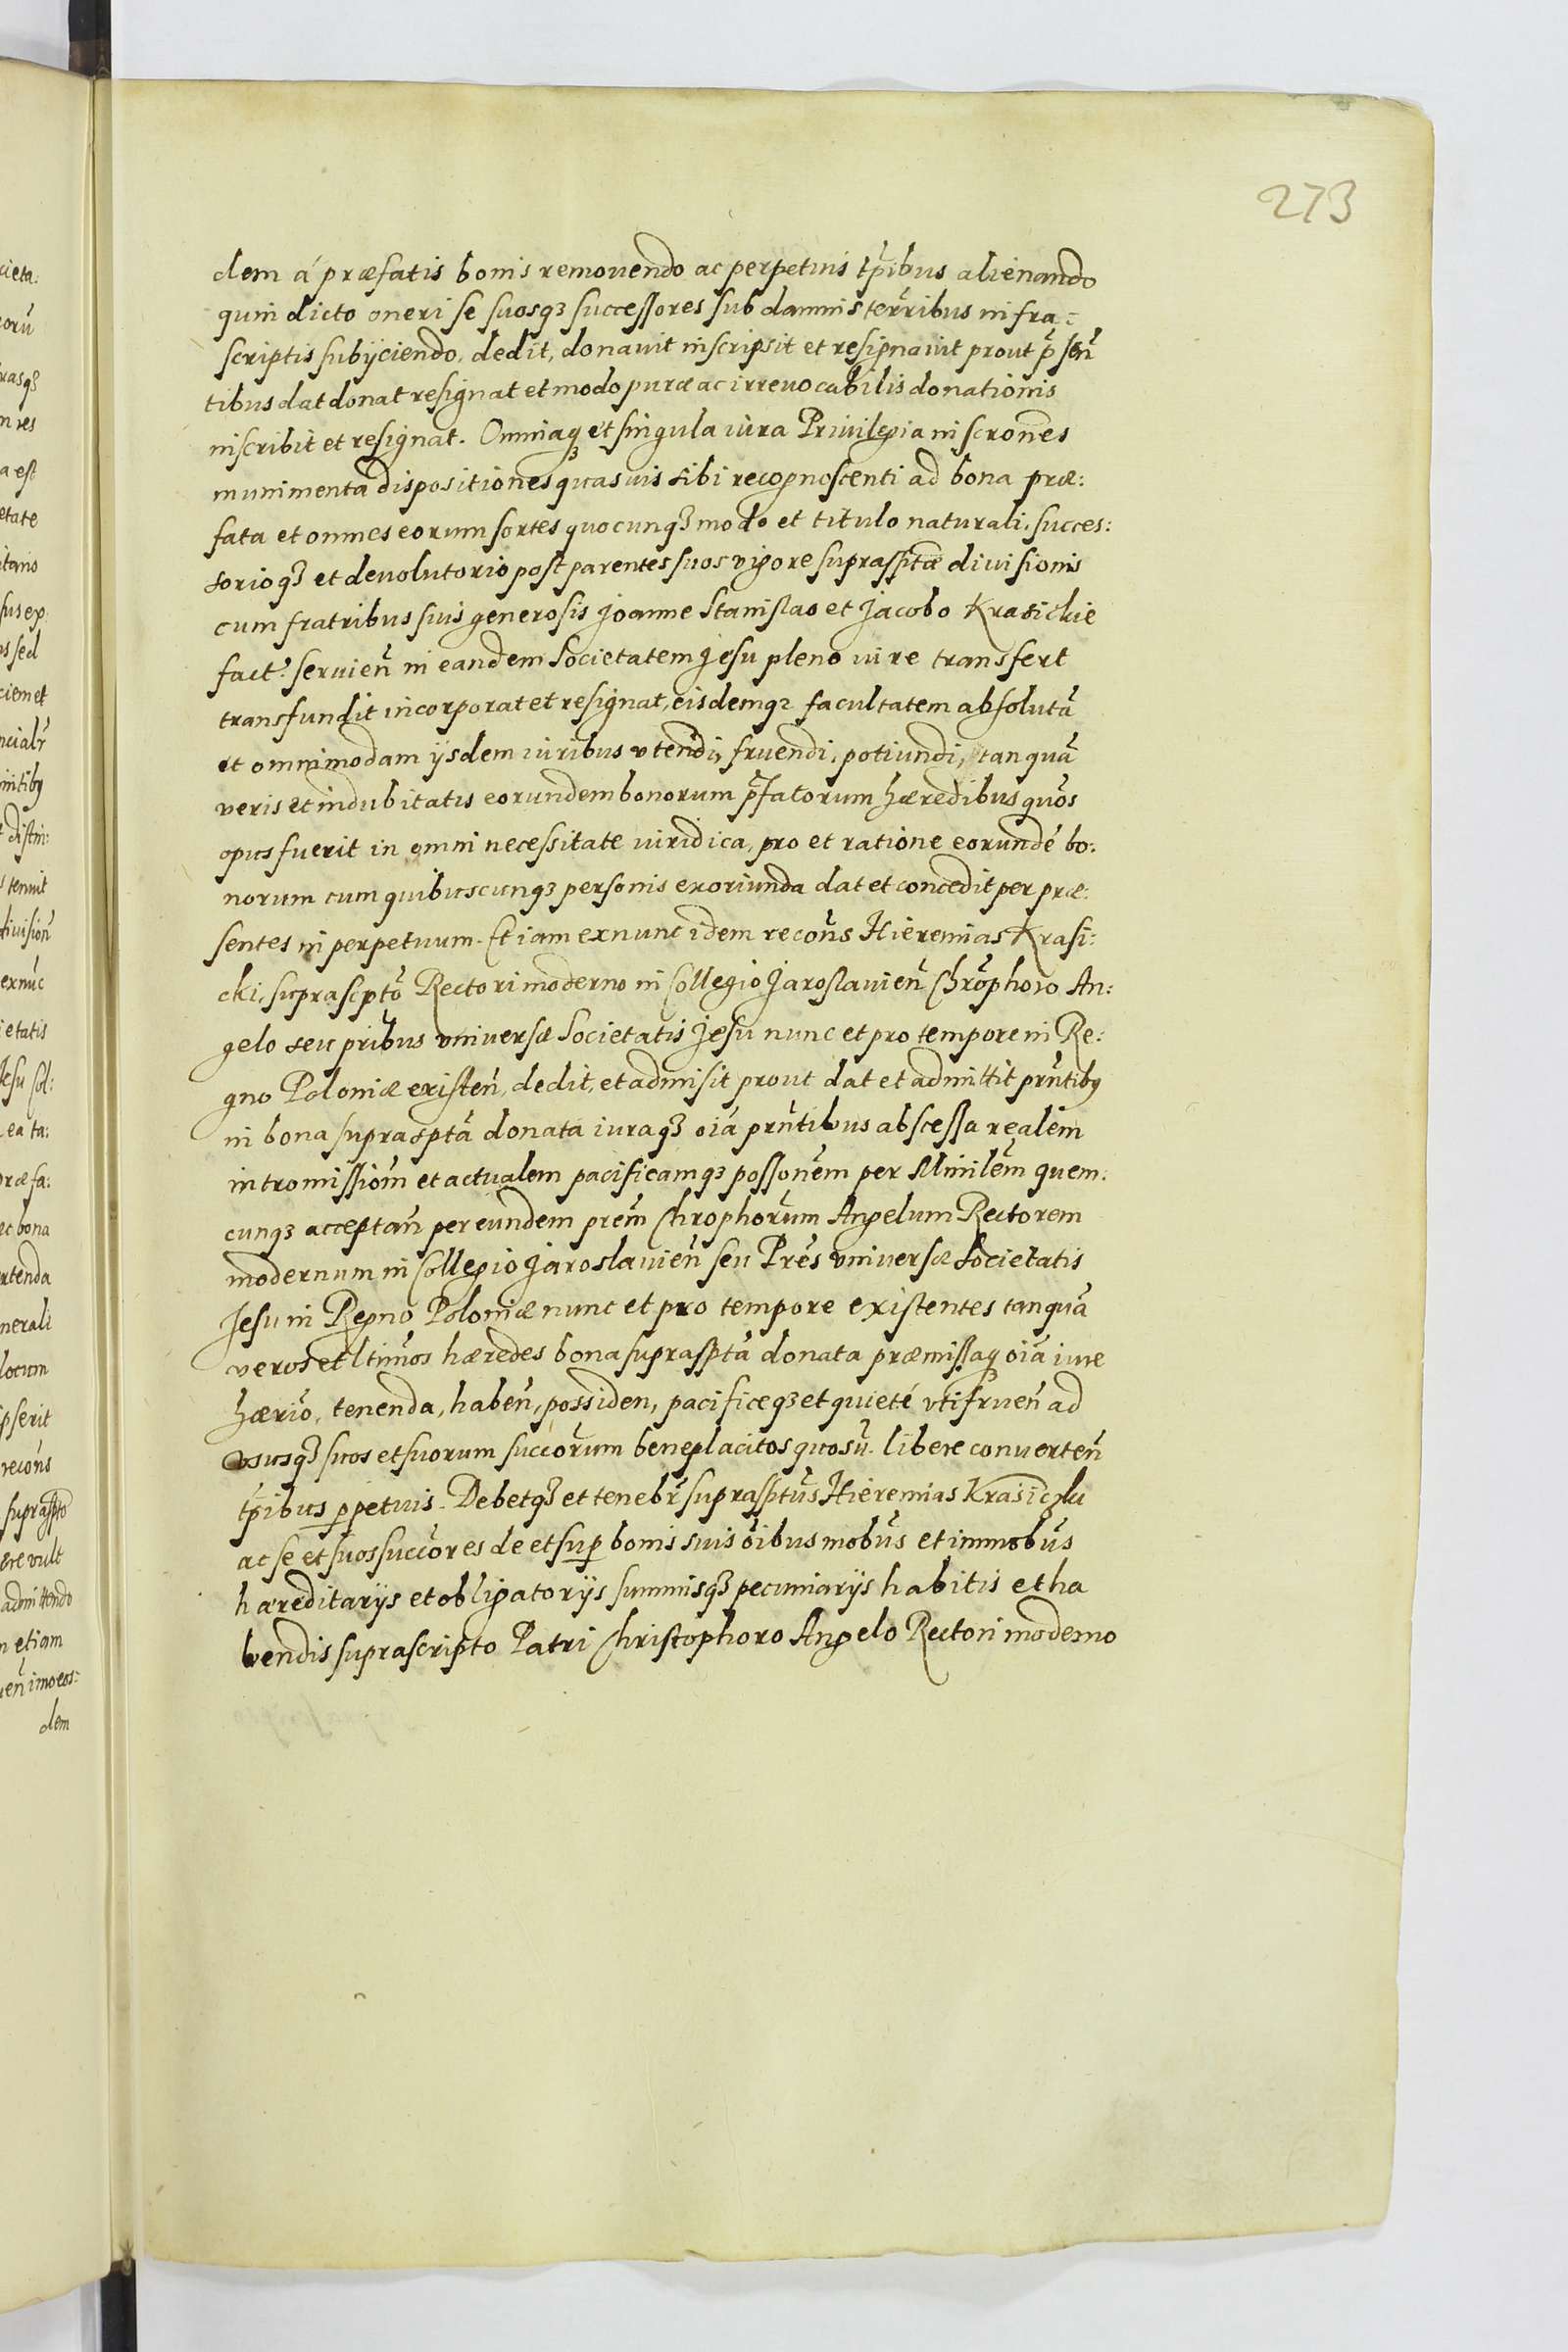 273
cieta:
orũ
rasqꝫ
n res
a est
etate
itano
sus ex
os sed
ciem et
ncialr̃
intibꝰ
distin:
tenuit
divisioñ
exnũc
ietatis
Jesu Col:
ea ta:
præfa:
ac bona
rtenda
nerali
locum
ipserit
recoñs
supraspto
ere vult
admittendo
n etiam
ueñ imo eos:
dem
dem á præfatis bonis removendo ac perpetuis tp̃ibus alienando
quin dicto oneri se suosqꝫ successores sub damnis terr̃ibus infra=
scriptis subijciendo, dedit, donavit inscripsit et resignavit prout p̃señ
tibus dat donat resignat et modo puræ ac irrevocabilis donationis
inscribit et resignat. Omniaqꝫ et singula iura Privilegia inscrones
munimenta dispositiones quasvis sibi recognoscenti ad bona præ:
fata et omnes eorum sortes quocunqꝫ modo et titulo naturali, succes:
sorioqꝫ et devolutorio post parentes suos vigore supraspitæ divisionis
cum fratribus suis generosis Joanne Stanislao et Jacobo Krasickie
fact: servieñ in eandem Societatem Jesu pleno iure transfert
transfundit incorporat et resignat, eisdemqꝫ facultatem absolutã
et omnimodam ijsdem iuribus vtendi, fruendi, potiundi, tanquã
veris et indubitatis eorundem bonorum p̃fatorum hæredibus quos
opus fuerit in omni necessitate iuridica, pro et ratione eorundẽ bo:
norum cum quibuscunqꝫ personis exoriunda dat et concedit per præ:
sentes in perpetuum. Et iam exnunc idem recoñs Hieremias Krasi:
cki, suprascpto Rectori moderno in Collegio Jaroslavieñ Chrophoro An:
gelo seu pribus vniversæ Societatis Jesu nunc et pro tempore in Re:
gno Poloniæ existeñ, dedit, et admisit prout dat et admittit prñtibꝰ
in bona supraspta donata iuraqꝫ oia prñtibus abscessa realem
intromissiom et actualem pacificamqꝫ possonem per Minilem quem:
cunqꝫ acceptañ per eundem prem Chrophorum Angelum Rectorem
modernum in Collegio Jaroslavieñ seu Pres vniversæ Societatis
Jesu in Regno Poloniæ nunc et pro tempore existentes tanquã
veros et ltimos hæredes bona supraspta donata præmissaqꝫ oia iure
hærio, tenenda, habeñ, possiden, pacificeqꝫ et quieté vtifrueñ ad
vsusqꝫ suos et suorum succorum beneplacitos quosũ. libere converteñ
tp̃ibus ꝑpetuis. Debetqꝫ et tenebr̃ suprasptus Hieremias Krasiczki
ac se et suos succores de et suꝑ bonis suis oibus mobus et immobus
hæreditarijs et obligatorijs summisqꝫ pecuniarijs habitis et ha
bendis suprascripto Patri Christophoro Angelo Rectori moderno